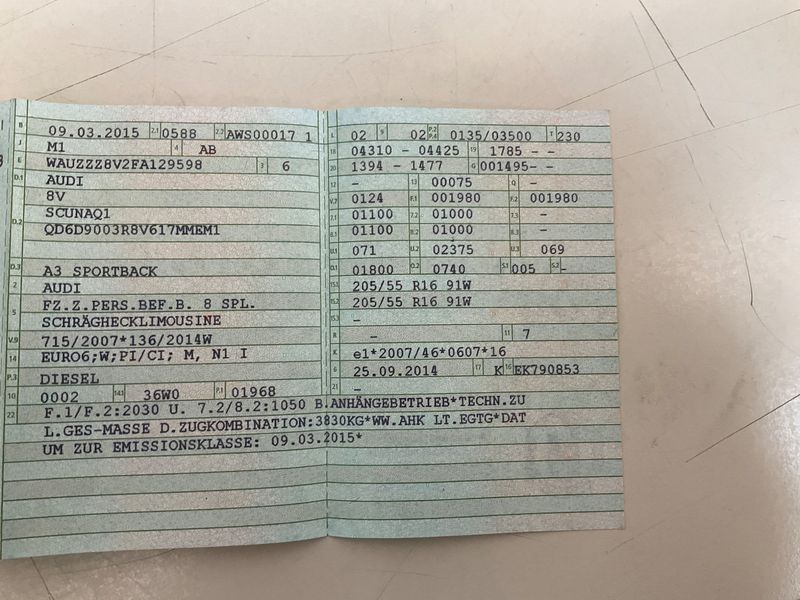 B 09.03.2015 2.1 0588 2.2 AWS00017 1
J M1 4 AB
E WAUZZZ8V2FA129598 3 6
D.1 AUDI
8V
D.2 SCUNAQ1
QD6D9003R8V617MMEM1
D.3 A3 SPORTBACK
2 AUDI
5 FZ.Z.PERS.BEF.B. 8 SPL.
SCHRÄGHECKLIMOUSINE
V.9 715/2007*136/2014W
14 EURO6;W;PI/CI; M, N1 I
P.3 DIESEL
10 0002 14.1 36W0 P.1 01968
L 02 9 02 P.2 P.4 0135/03500 T 230
18 04310 - 04425 19 1785 - -
20 1394 - 1477 G 001495- -
12 - 13 00075 Q -
V.7 0124 F.1 001980 F.2 001980
7.1 01100 7.2 01000 7.3 -
8.1 01100 8.2 01000 8.3 -
U.1 071 U.2 02375 U.3 069
O.1 01800 O.2 0740 S.1 005 S.2 -
15.1 205/55 R16 91W
15.2 205/55 R16 91W
15.3 -
R - 11 7
K e1*2007/46*0607*16
6 25.09.2014 17 K 16 EK790853
21 -
22 F.1/F.2:2030 U. 7.2/8.2:1050 B.ANHÄNGEBETRIEB*TECHN.ZU
L.GES-MASSE D.ZUGKOMBINATION:3830KG*WW.AHK LT.EGTG*DAT
UM ZUR EMISSIONSKLASSE: 09.03.2015*